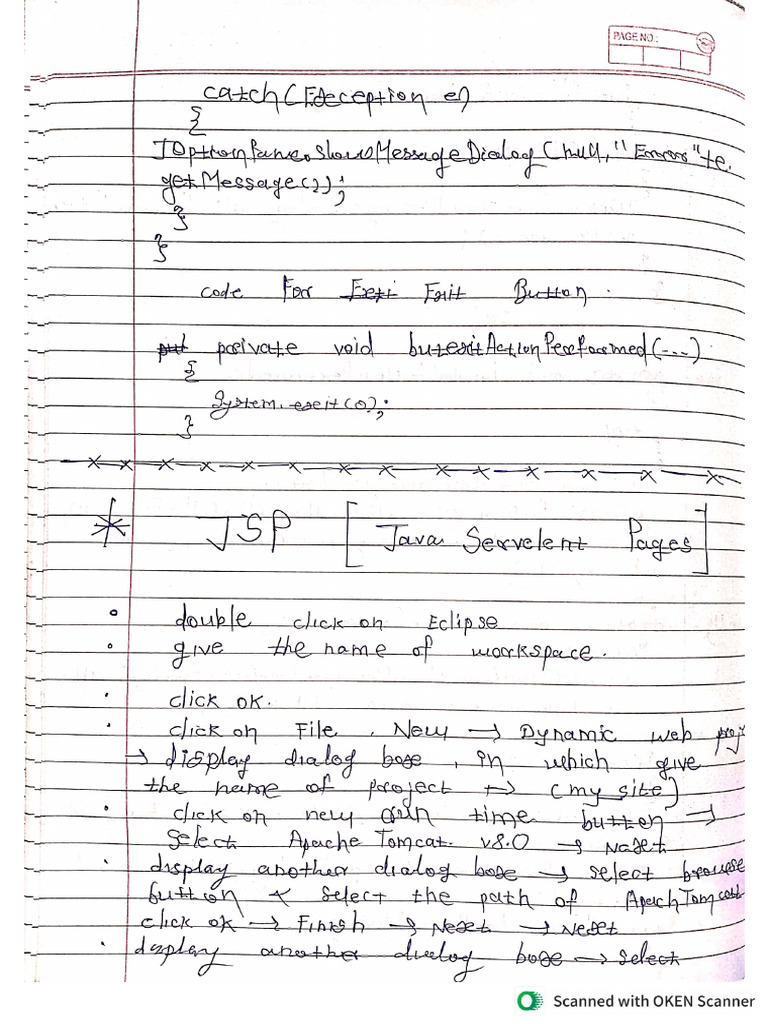 PAGE NO.:
catch (Exception e)
{
JOptionPane.showMessageDialog (null, "Error" + e.
getMessage());
}
}
code For Exit Button.
private void butexitActionPerformed(---)
{
System.exit(0);
}
* JSP [Java Servelent Pages]
• double click on Eclipse
• give the name of workspace.
• click ok.
• click on File, New → Dynamic web proj
→ display dialog box, in which give
the name of project → (my site)
• click on new run time button →
Select Apache Tomcat v8.0 → Next
• display another dialog box → select browse
button & select the path of Apach Tomcat
click ok → Finish → Next → Next
• display another dialog box → select
Scanned with OKEN Scanner